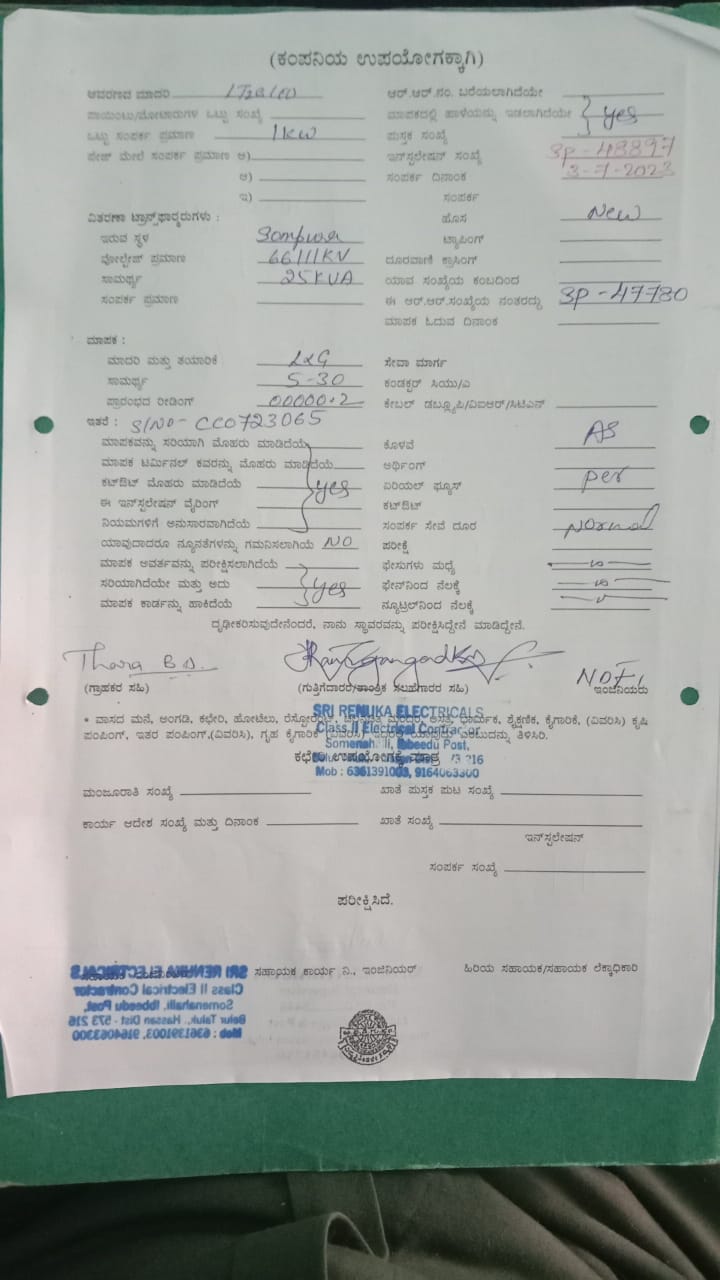 (ಕಂಪನಿಯ ಉಪಯೋಗಕ್ಕಾಗಿ)
ಆವರಣದ ಮಾದರಿ
ಆರ್.ಆರ್.ನಂ. ಬರೆಯಲಾಗಿದೆಯೇ
ಪಾಯಿಂಟು/ಮೋಟಾರುಗಳ ಒಟ್ಟು ಸಂಖ್ಯೆ
ಮಾಪಕದಲ್ಲಿ ಹಾಳೆಯನ್ನು ಇಡಲಾಗಿದೆಯೇ yes
ಒಟ್ಟು ಸಂಪರ್ಕ ಪ್ರಮಾಣ 1kw
ಪುಸ್ತಕ ಸಂಖ್ಯೆ
ಫೇಜ್ ಮೇಲೆ ಸಂಪರ್ಕ ಪ್ರಮಾಣ ಅ)
ಇನ್‌ಸ್ಟಲೇಷನ್ ಸಂಖ್ಯೆ 3p-48897
ಆ)
ಸಂಪರ್ಕ ದಿನಾಂಕ 3-7-2023
ಇ)
ಸಂಪರ್ಕ
ವಿತರಣಾ ಟ್ರಾನ್ಸ್‌ಫಾರ್ಮರುಗಳು :
ಹೊಸ New
ಇರುವ ಸ್ಥಳ Sompura
ಟ್ಯಾಪಿಂಗ್
ವೋಲ್ಟೇಜ್ ಪ್ರಮಾಣ 66/11KV
ದೂರವಾಣಿ ಕ್ರಾಸಿಂಗ್
ಸಾಮರ್ಥ್ಯ 25KVA
ಯಾವ ಸಂಖ್ಯೆಯ ಕಂಬದಿಂದ
ಸಂಪರ್ಕ ಪ್ರಮಾಣ
ಈ ಆರ್.ಆರ್.ಸಂಖ್ಯೆಯ ನಂತರದ್ದು 3p-47780
ಮಾಪಕ ಓದುವ ದಿನಾಂಕ
ಮಾಪಕ :
ಮಾದರಿ ಮತ್ತು ತಯಾರಿಕೆ L&G
ಸೇವಾ ಮಾರ್ಗ
ಸಾಮರ್ಥ್ಯ 5-30
ಕಂಡಕ್ಟರ್ ಸಿಯು/ಎ
ಪ್ರಾರಂಭದ ರೀಡಿಂಗ್ 00000.2
ಕೇಬಲ್ ಡಬ್ಲ್ಯೂಪಿ/ವಿಐಆರ್/ಸಿಟಿಎಸ್
ಇತರೆ : S/NO-CC0723065
ಮಾಪಕವನ್ನು ಸರಿಯಾಗಿ ಮೊಹರು ಮಾಡಿದೆಯೆ
ಕೊಳವೆ AS
ಮಾಪಕ ಟರ್ಮಿನಲ್ ಕವರನ್ನು ಮೊಹರು ಮಾಡಿದೆಯೆ
ಅರ್ಥಿಂಗ್
ಕಟ್‌ಔಟ್ ಮೊಹರು ಮಾಡಿದೆಯೆ yes
ಏರಿಯಲ್ ಫ್ಯೂಸ್ per
ಈ ಇನ್‌ಸ್ಟಲೇಷನ್ ವೈರಿಂಗ್
ಕಟ್‌ಔಟ್
ನಿಯಮಗಳಿಗೆ ಅನುಸಾರವಾಗಿದೆಯೆ
ಸಂಪರ್ಕ ಸೇವೆ ದೂರ Normal
ಯಾವುದಾದರೂ ನ್ಯೂನತೆಗಳನ್ನು ಗಮನಿಸಲಾಗಿಯೆ NO
ಪರೀಕ್ಷೆ
ಮಾಪಕ ಆವರ್ತವನ್ನು ಪರೀಕ್ಷಿಸಲಾಗಿದೆಯೆ
ಫೇಸುಗಳು ಮಧ್ಯೆ
ಸರಿಯಾಗಿದೆಯೇ ಮತ್ತು ಅದು yes
ಫೇಸ್‌ನಿಂದ ನೆಲಕ್ಕೆ
ಮಾಪಕ ಕಾರ್ಡನ್ನು ಹಾಕಿದೆಯೆ
ನ್ಯೂಟ್ರಲ್‌ನಿಂದ ನೆಲಕ್ಕೆ
ದೃಢೀಕರಿಸುವುದೇನೆಂದರೆ, ನಾನು ಸ್ಥಾವರವನ್ನು ಪರೀಕ್ಷಿಸಿದ್ದೇನೆ ಮಾಡಿದ್ದೇನೆ.
Thara B.D.
(ಗ್ರಾಹಕರ ಸಹಿ)
(ಗುತ್ತಿಗೆದಾರರ/ತಾಂತ್ರಿಕ ಸಲಹೆಗಾರರ ಸಹಿ)
ಇಂಜಿನಿಯರು
SRI RENUKA ELECTRICALS
Class II Electrical Contractor
* ವಾಸದ ಮನೆ, ಅಂಗಡಿ, ಕಛೇರಿ, ಹೋಟೆಲು, ಧಾರ್ಮಿಕ, ಶೈಕ್ಷಣಿಕ, ಕೈಗಾರಿಕೆ, (ವಿವರಿಸಿ) ಕೃಷಿ
ಪಂಪಿಂಗ್, ಇತರ ಪಂಪಿಂಗ್,(ವಿವರಿಸಿ), ಗೃಹ ಕೈಗಾರಿಕೆ (ವಿವರಿಸಿ) ತಿಳಿಸಿರಿ.
ಕಛೇರಿ ಉಪಯೋಗಕ್ಕೆ ಮಾತ್ರ
Mob : 6361391003, 9164063300
ಮಂಜೂರಾತಿ ಸಂಖ್ಯೆ
ಖಾತೆ ಪುಸ್ತಕ ಪುಟ ಸಂಖ್ಯೆ
ಕಾರ್ಯ ಆದೇಶ ಸಂಖ್ಯೆ ಮತ್ತು ದಿನಾಂಕ
ಖಾತೆ ಸಂಖ್ಯೆ
ಇನ್‌ಸ್ಟಲೇಷನ್
ಸಂಪರ್ಕ ಸಂಖ್ಯೆ
ಪರೀಕ್ಷಿಸಿದೆ.
SRI RENUKA ELECTRICALS
ಸಹಾಯಕ ಕಾರ್ಯ ನಿ., ಇಂಜಿನಿಯರ್
ಹಿರಿಯ ಸಹಾಯಕ/ಸಹಾಯಕ ಲೆಕ್ಕಾಧಿಕಾರಿ
Class II Electrical Contractor
Somenahalli, Ibbeedu Post,
Belur Taluk., Hassan Dist - 573 216
Mob : 6361391003, 9164063300